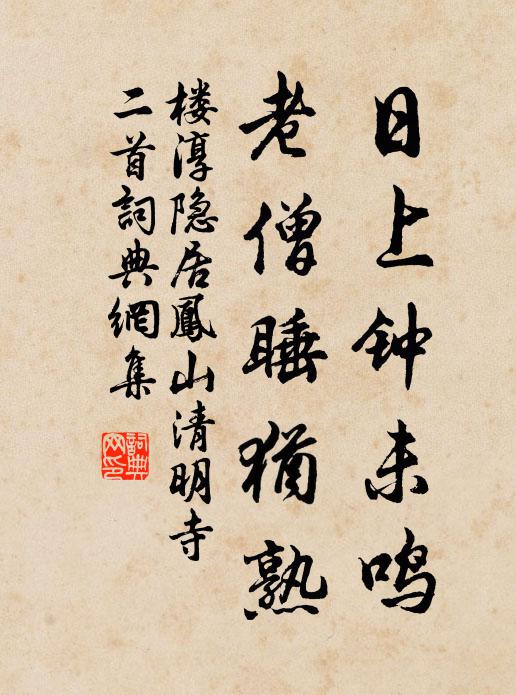 日上钟未鸣
老僧睡犹熟
楼淳隐居鳳山清明寺
二首詞典網集
詞典网印